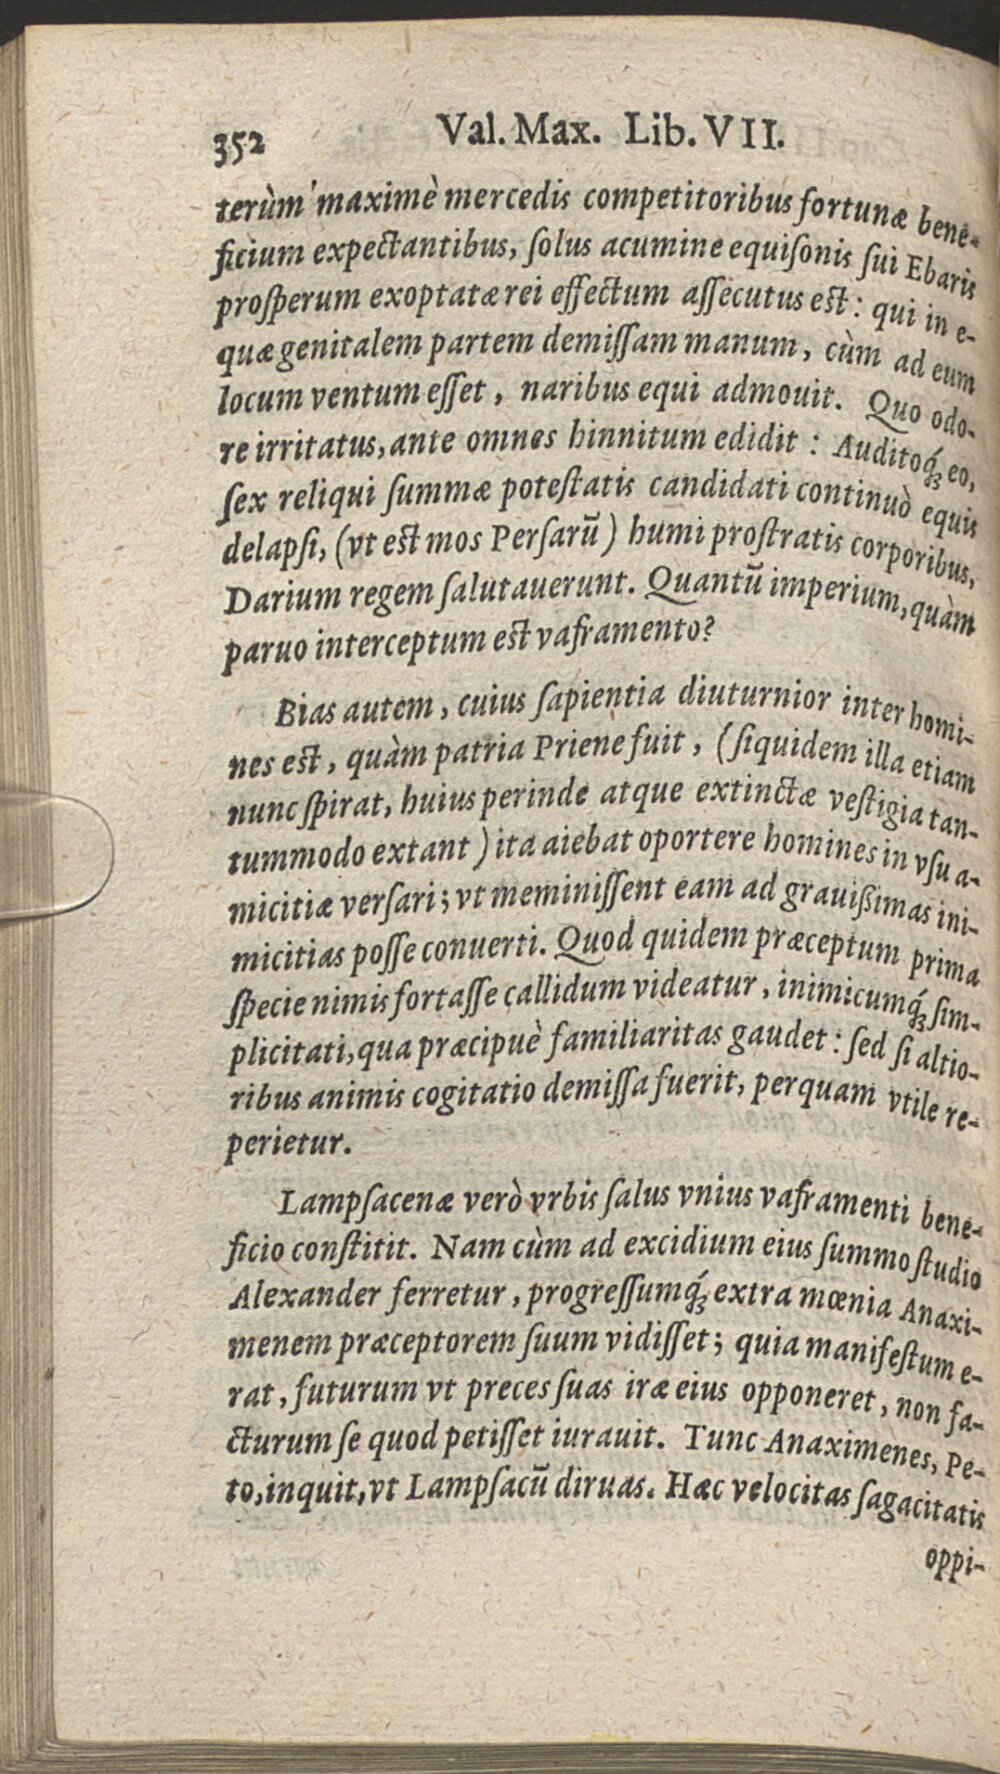 352 Val. Max. Lib. VII.
terùm maximè mercedis competitoribus fortunæ bene-
ficium expectantibus, ſolus acumine equiſonis ſui Ebaris
proſperum exoptatæ rei effectum aſſecutus eſt: qui in e-
quæ genitalem partem demiſſam manum, cùm ad eum
locum ventum eſſet, naribus equi admouit. Quo odo-
re irritatus, ante omnes hinnitum edidit: Auditoq́ꝫ eo,
ſex reliqui ſummæ poteſtatis candidati continuò equis
delapſi, (vt eſt mos Perſarū) humi proſtratis corporibus,
Darium regem ſalutauerunt. Quantū imperium, quàm
paruo interceptum eſt vaframento?
Bias autem, cuius ſapientia diuturnior inter homi-
nes eſt, quàm patria Priene fuit, (ſiquidem illa etiam
nunc ſpirat, huius perinde atque extinctæ veſtigia tan-
tummodo extant) ita aiebat oportere homines in vſu a-
micitiæ verſari; vt meminiſſent eam ad grauißimas ini-
micitias poſſe conuerti. Quod quidem præceptum prima
ſpecie nimis fortaſſe callidum videatur, inimicumq́ꝫ ſim-
plicitati, qua præcipuè familiaritas gaudet: ſed ſi altio-
ribus animis cogitatio demiſſa fuerit, perquam vtile re-
perietur.
Lampſacenæ verò vrbis ſalus vnius vaframenti bene-
ficio conſtitit. Nam cùm ad excidium eius ſummo ſtudio
Alexander ferretur, progreſſumq́ꝫ extra mœnia Anaxi-
menem præceptorem ſuum vidiſſet; quia manifeſtum e-
rat, futurum vt preces ſuas iræ eius opponeret, non fa-
cturum ſe quod petiſſet iurauit. Tunc Anaximenes, Pe-
to, inquit, vt Lampſacū diruas. Hæc velocitas ſagacitatis
oppi-